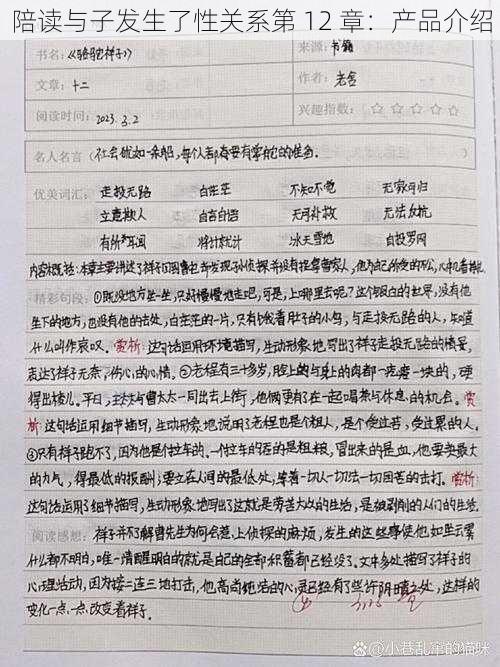 陪读与子发生了性关系第 12 章：产品介绍
书名：《骆驼祥子》
来源：书籍
文章：十二
作者：老舍
阅读时间：2023.3.2
兴趣指数：☆ ☆ ☆ ☆ ☆
名人名言（社会犹如一条船，每个人都要有掌舵的准备。 ）
优美词汇： 走投无路 白茫茫 不知不觉 无家可归
立意欺人 自言自语 无可补救 无法反抗
有所耳闻 将计就计 冰天雪地 自投罗网
内容概括：本章主要讲述了祥子
精彩句段：①既没地方坐一坐，只好慢慢地走吧，可是，上哪里去呢？这个银白的世界，没有他
坐下的地方，也没有他的去处，白茫茫的一片，只有饿着肚子的小鸟，与走投无路的人，知道
什么叫作哀叹。赏析：这句话运用环境描写，生动形象地写出了祥子走投无路的情景，
表达了祥子无奈、伤心的心情。②老程有三十多岁，脸上的与身上的肉都一疙瘩一块的，硬
得出棱儿。平日，与曹太太一同出去上街，他俩更有在一起喝茶与休息的机会。赏
析：这句话运用细节描写，生动形象地说明了老程也是个粗人，是个受过苦，受过累的人。
③只有祥子跑不了，因为他是个拉车的。一个拉车的吞的是粗粮，冒出来的是血，他要卖最大
的力气，得最低的报酬；要立在人间的最低处，等着一切人一切法一切困苦的击打。赏析：
这句话运用了细节描写，生动形象地写出了这就是劳苦大众的生活，是被剥削的人们的生活。
阅读感想：祥子并不了解曹先生为何会惹上侦探的麻烦，发生的这些事使他如坠云雾
什么都不明白，唯一清醒明白的就是自己的全部积蓄都已经没了。文中多处描写了祥子的
心理活动，因为接二连三地打击，他高尚纯洁的心灵已经有了些许阴暗之处，这样的
变化一点一点改变着祥子。
@小巷乱窜的猫咪